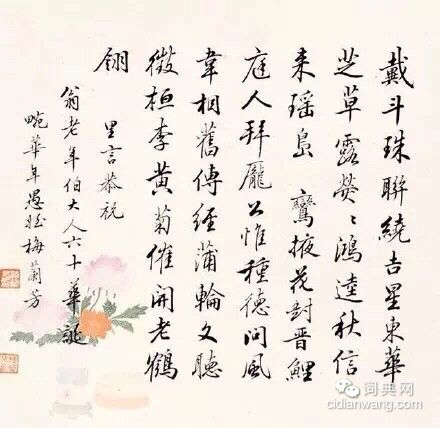 戴斗珠聯繞吉星東華
芝草露熒〻鴻逵秋信
来瑶島 鸞掖花封晋鯉
庭人拜龐公惟種德問風
韋相舊傳經蒲輪又聽
徵桓李黄菊催開老鶴
翎
里言恭祝
翁老年伯大人六十華誕
畹華年愚姪梅蘭芳
词典网
cidianwang.com